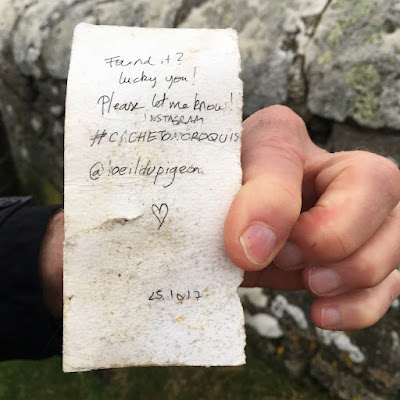 Found it?
lucky you!
Please let me know!
INSTAGRAM
#CACHETONCROQUIS
@loeildupigeon
♡
25.10.17